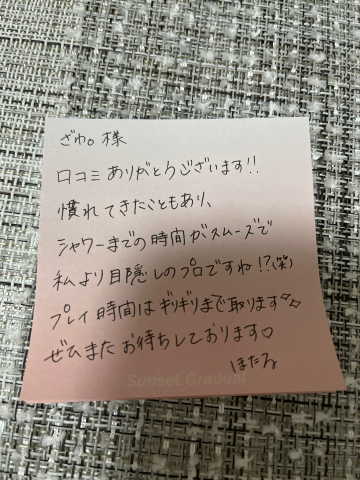 ざわ。様
口コミありがとうございます!!
慣れてきたこともあり、
シャワーまでの時間がスムーズで
私より目隠しのプロですね!?(笑)
プレイ時間はギリギリまで取ります✧✧
ぜひまたお待ちしております♡
ほたる
Sunset Gradual